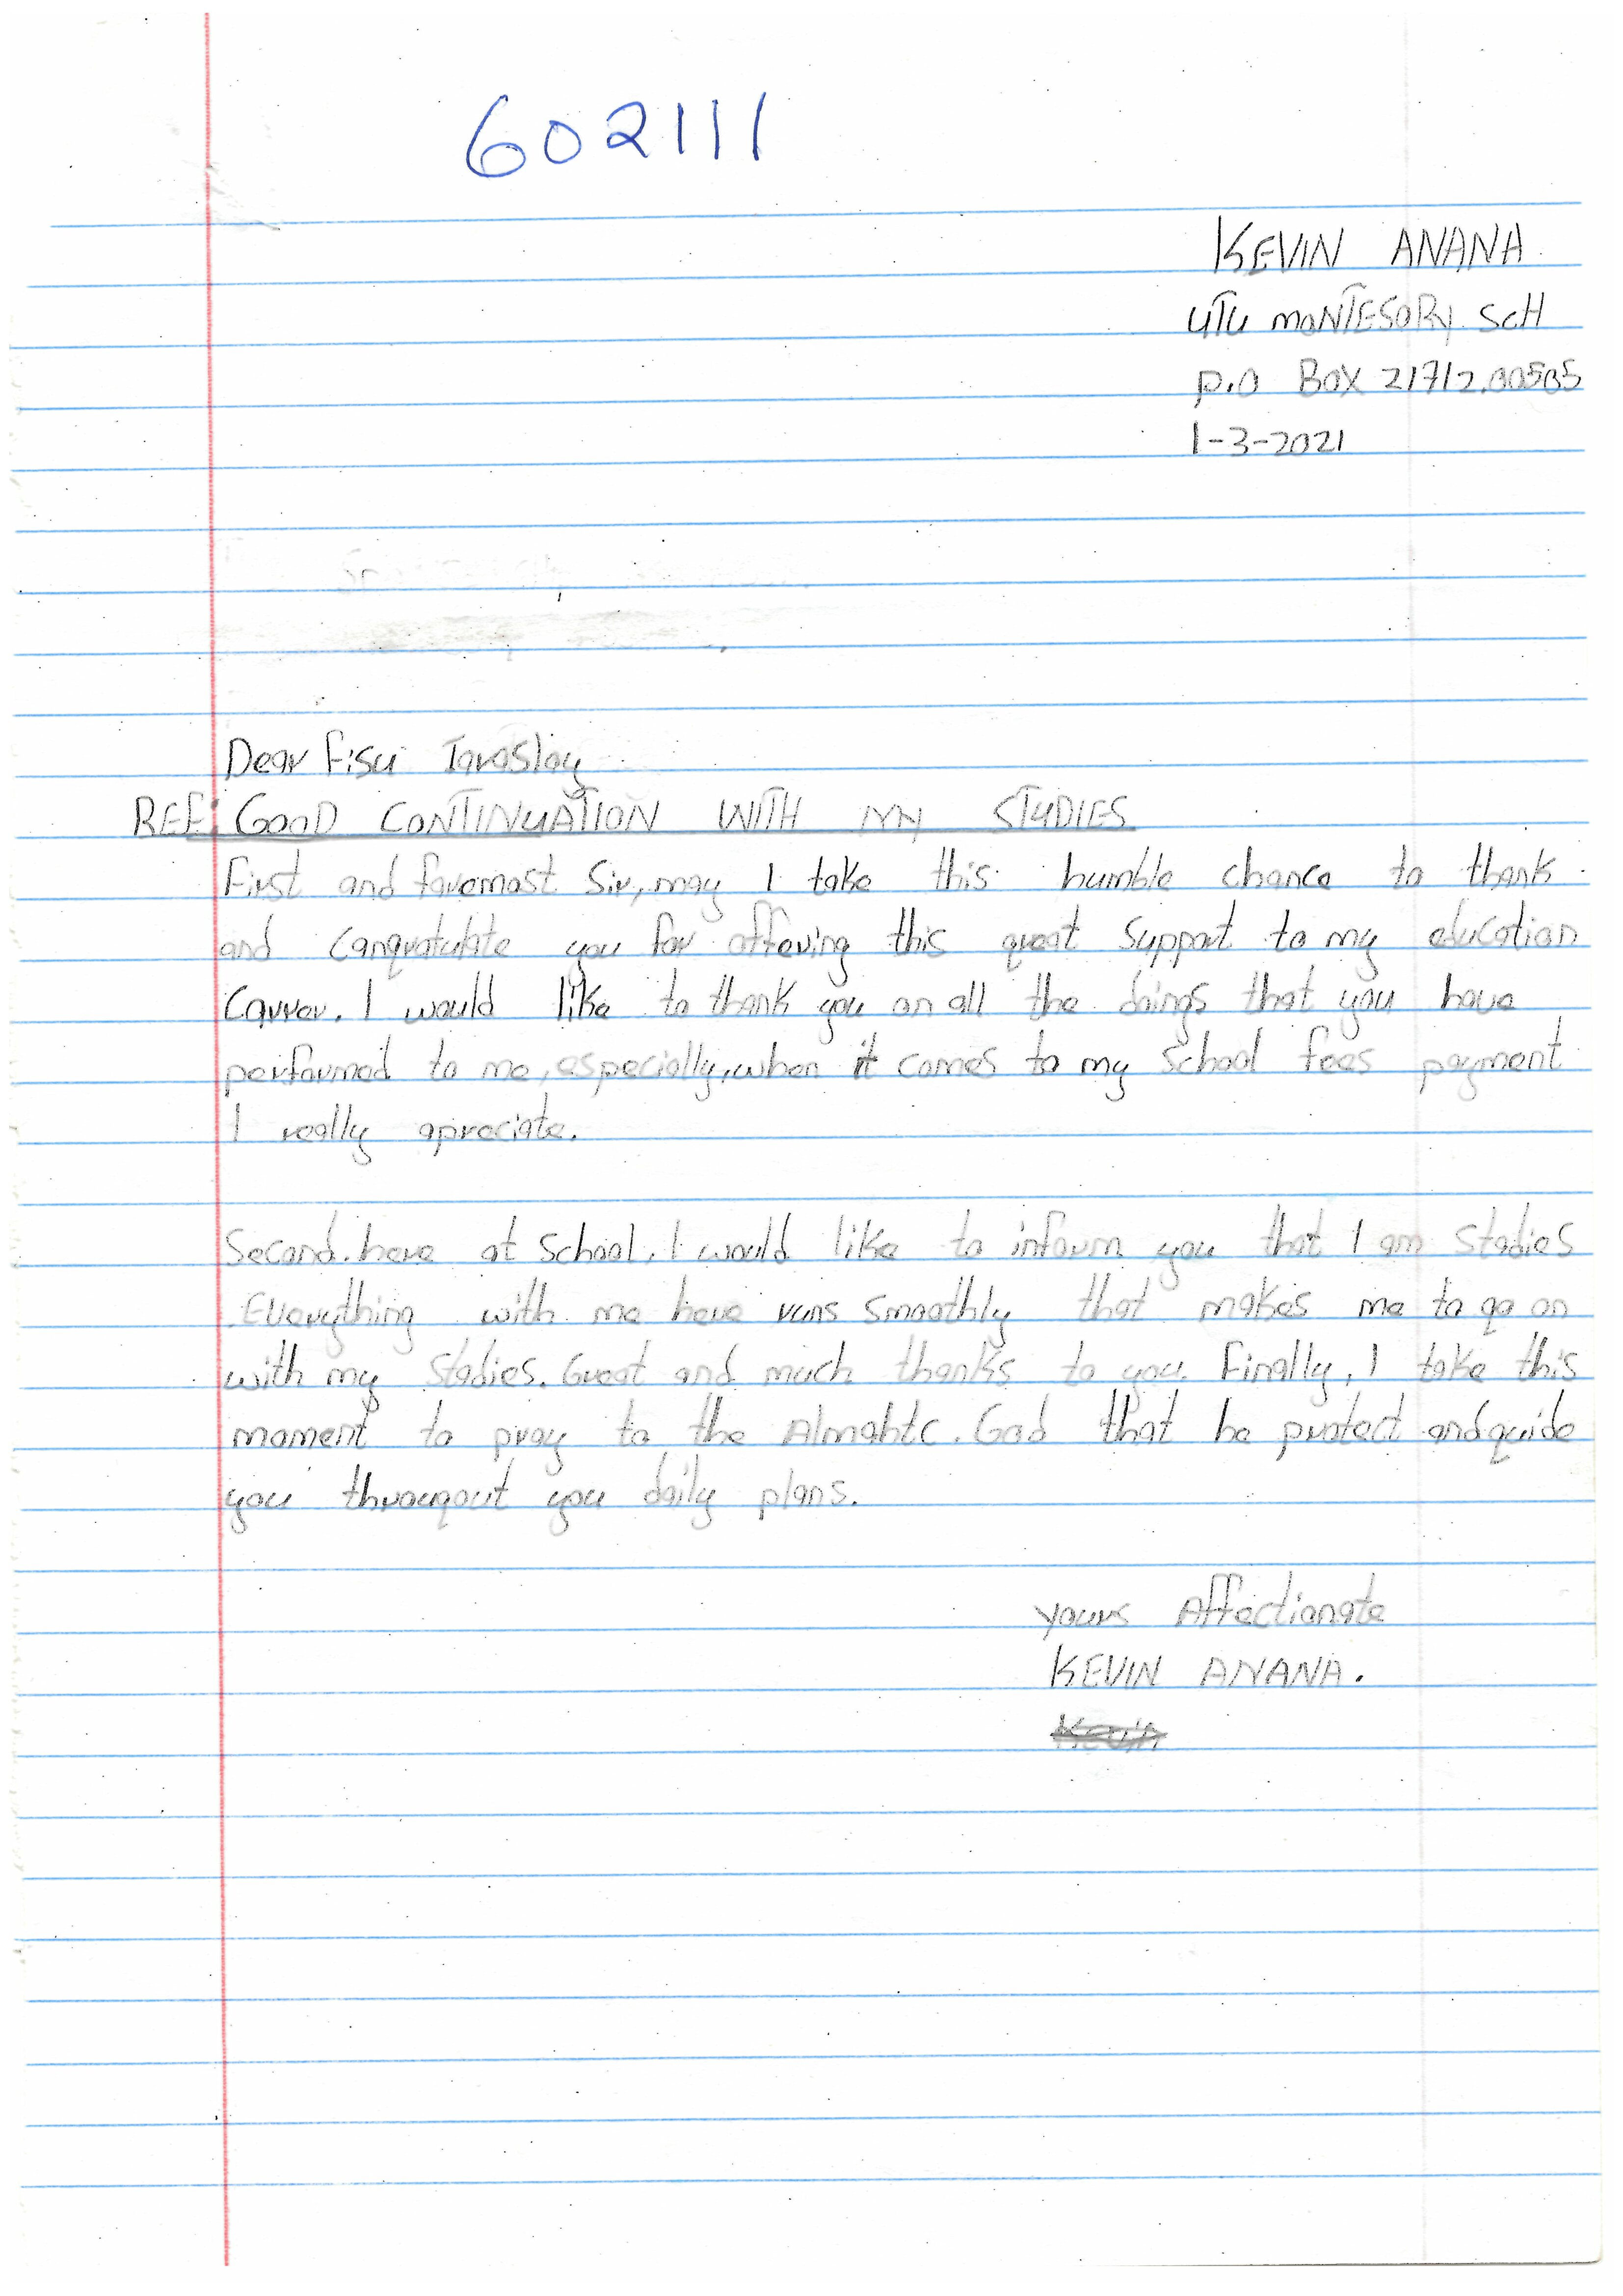 602111
KEVIN ANANA
UTU MONTESORY SCH
P.O BOX 21712.00505
1-3-2021
Dear Fisu Taroslay
REF: GOOD CONTINUATION WITH MY STUDIES
First and foremost Sir, may I take this humble chance to thank
and congratulate you for offering this great support to my education
Carrer. I would like to thank you on all the doings that you have
performed to me, especially, when it comes to my school fees payment
I really apreciate.
Second. here at School, I would like to inform you that I am stadies
.Everything with me here runs smoothly that makes me to go on
with my stadies. Great and much thanks to you. Finally, I take this
moment to pray to the . God that he protect and guide
you througout you daily plans.
yours Affectionate
KEVIN ANANA.
Kevin